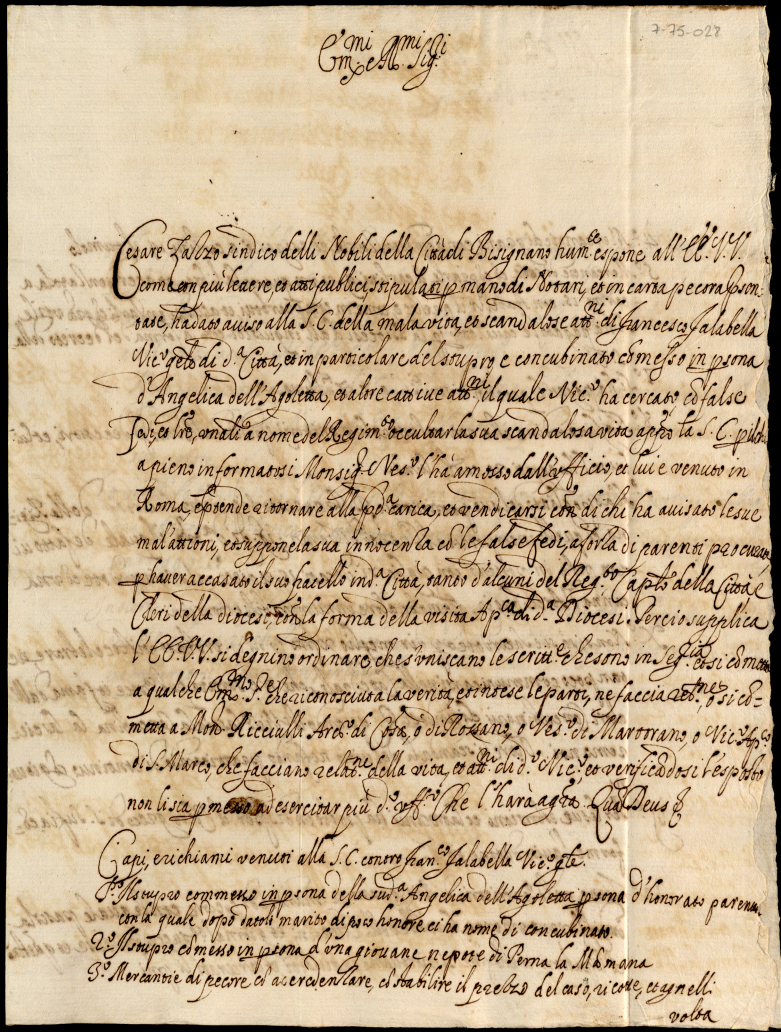 7-75-028
Em.mi et R.mi Sig.ri
Cesare Zalzo sindico delli Nobili della Città di Bisignano hum.te espone all'EE. VV.
come con più lettere, et atti publici, stipulati p mano di Notari, et in carta pecora
tate, ha dato aviso alla S. C. della mala vita, et scandalose att.ni di Francesco Jalabella
Vic.o gnle di d.a Città, et in particolare del stupro e concubinato cõmesso in psona
d'Angelica dell'Agoletta, et altre cattive att.ni il quale Vic.o ha cercato cõ false
a nome del Regim.to occultar la sua scandalosa vita app.o la S. C.
apieno informatosi Monsig.r Ves.o l'hà amosso dall'ufficio, et lui e venuto in
Roma, e ptende ritornare alla p.a carica, et vendicarsi cõn di chi ha avisato le sue
mal'attioni, et suppone la sua innocenza cõ le false fedi, a forza di parenti procurate
p haver accasato il suo in d.a Città, tanto d'alcuni del Reg.to Cap.lo della Città e
Cleri della diocesi, con la forma della visita Ap.ca di d.a Diocesi. Perciò supplica
l'EE. VV. si degnino ordinare, che s'uniscano le scritt.e che sono in Seg.ria et si cõmetta
a qualche Em.mo P.e che riconosciuta la verità, et intese le parti, ne faccia relat.ne, o si cõ-
metta a Mon.r Ricciulli Arc.o di Cosa, ò di Rossano, o Ves.o di Martorano, o Vic.o Ap.co
di S. Marco, che facciano relat.ne della vita, et att.ni di d.o Vic.o et verificãdosi l'esposto
non li sia pmesso ad esercitar più d.o uff.o Che l'harà a gra. Quã Deus &
Capi, e richiami venuti alla S. C. contro Fran.co Jalabella Vic.o gle.
P.o Il stupro commesso in psona della sud.a Angelica dell'Agoletta psona d'honorato parenta.
con la quale dopo datoli marito di poco honore ci ha nome di concubinato.
2.o Il stupro cõmesso in psona d'una giovane nepote di Perna la Mãmana
3.o Mercantie di pecore cõ acredentare, cõ stabilire il prezzo del caso, ricotte, et agnelli
volta